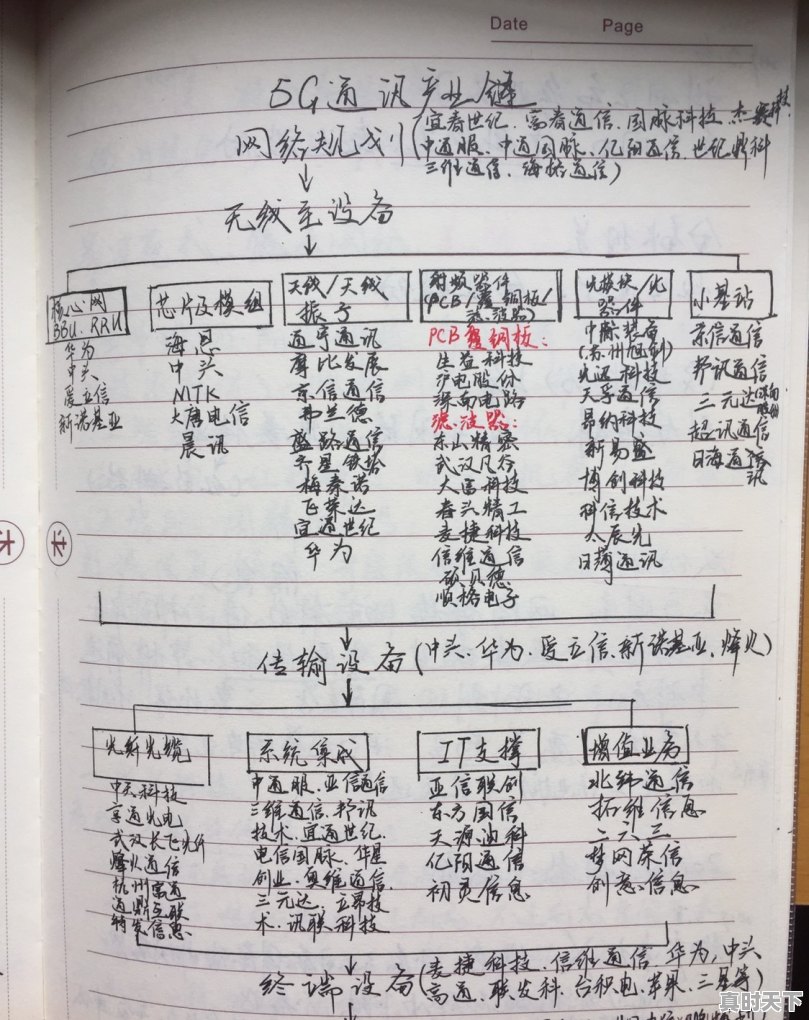 Date Page
5G通讯产业链
网络规划(宜春世纪、富春通信、国脉科技、杰赛科技
中通服、中通国脉、亿阳通信、世纪鼎科
三维通信、海格通信)
无线主设备
核心网
BBU、RRU
华为
中头
爱立信
新诺基亚
芯片及模组
海思
中头
MTK
大唐电信
晨讯
天线/天线
振子
通宇通讯
摩比发展
京信通信
弗兰德
盛路通信
齐星铁塔
梅泰诺
飞荣达
宜通世纪
华为
射频器件
(PCB/覆铜板/
滤波器)
PCB覆铜板：
生益科技
沪电股份
深南电路
滤波器：
东山精密
武汉凡谷
大富科技
春头精工
麦捷科技
信维通信
硕贝德
顺络电子
光模块/光
器件
中际装备
(苏州旭创)
光迅科技
天孚通信
昂纳科技
新易盛
博创科技
科信技术
太辰光
日海通讯
小基站
京信通信
邦讯通信
三元达
超讯通信
日海通讯
传输设备(中头、华为、爱立信、新诺基亚、烽火)
光纤光缆
中天科技
亨通光电
武汉长飞光纤
烽火通信
杭州富通
通鼎互联
特发信息
系统集成
中通服、亚信通信
三维通信、邦讯
技术、宜通世纪、
电信国脉、华星
创业、奥维通信、
三元达、立昂技
术、讯联科技
IT支撑
亚信联创
东方国信
天源迪科
亿阳通信
初灵信息
增值业务
北纬通信
拓维信息
二六三
梦网荣信
创意信息
终端设备(麦捷科技、信维通信、华为、中头
高通、联发科、台积电、苹果、三星等)
真时天下